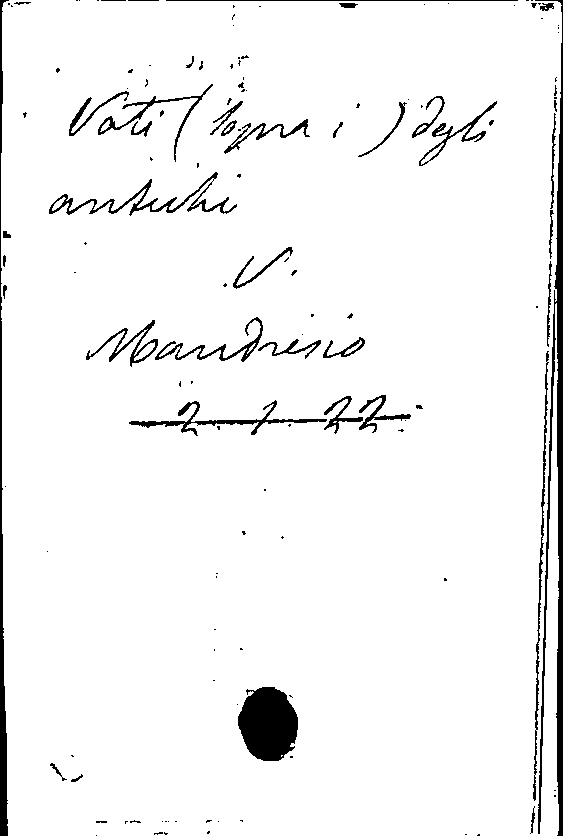 Voti (sopra i) degli
antichi
V.
Mandresio
2 1 22